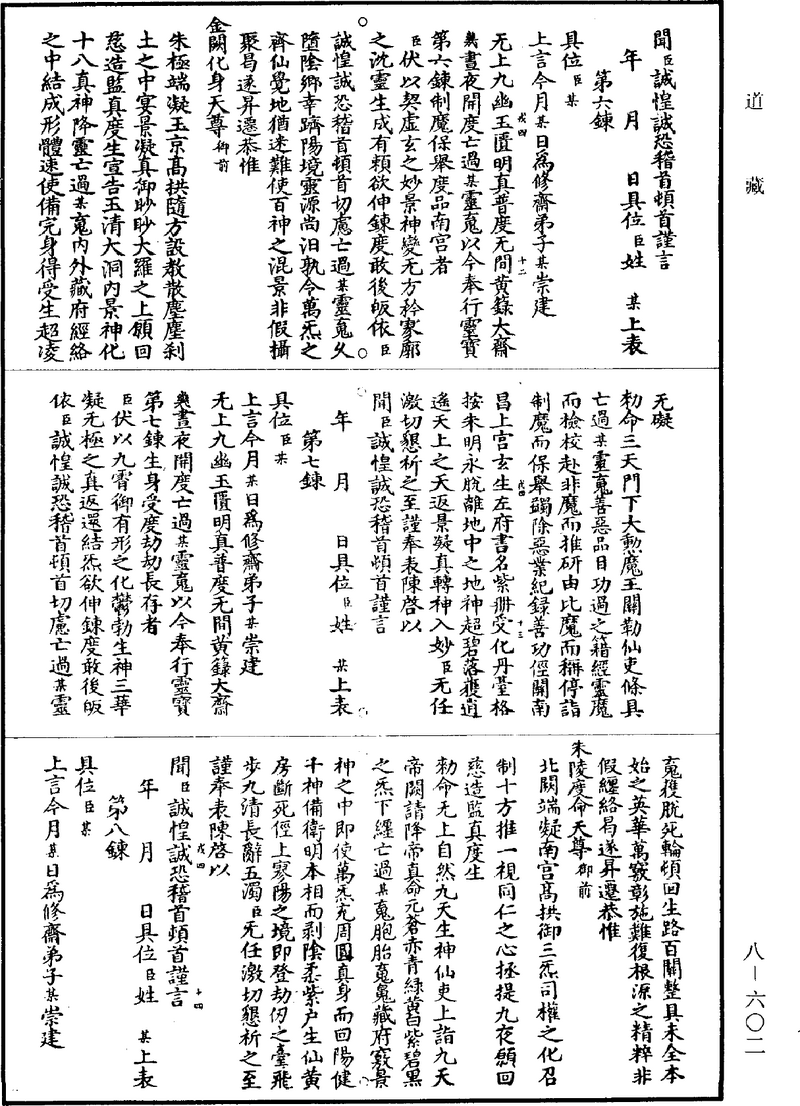 道藏
聞臣誠惶誠恐稽首頓首謹言
年　月　日具位臣姓　某上表
第六鍊
具位臣某
上言今月某日爲修齋弟子某崇建
无上九幽玉匱明真普度无間黄籙大齋
幾晝夜開度亡過某靈䰟以今奉行靈寶
戌四
十二
第六鍊制魔保舉度品南宫者
臣伏以契虚玄之妙景神變无方矜寥廓
之沈靈生成有賴欲伸鍊度敢後皈依臣
誠惶誠恐稽首頓首切慮亡過某靈䰟久
墮陰鄉幸躋陽境靈源尚汨孰令萬炁之
齊仙覺地猶迷難使百神之混景非假攝
聚曷遂昇遷恭惟
金闕化身天尊御前
朱極端凝玉京高拱隨方設教散麈麈刹
土之中宴景凝真御眇眇大羅之上願回
慈造監真度生宣告玉清大洞内景神化
十八真神降靈亡過某䰟内外藏府經絡
之中結成形體速使備完身得受生超凌
无礙
勑命三天門下大懃魔王關勒仙吏條具
亡過某靈䰟善惡品目功過之籍經靈魔
而檢校赴非魔而推研由比魔而稱停詣
制魔而保舉蠲除惡業紀録善功徑關南
戌四
十三
昌上宫玄生左府書名紫册受化丹臺格
按朱明永脱離地中之地神超碧落獲逍
遥天上之天返景凝真轉神入妙臣无任
激切懇祈之至謹奉表陳啓以
聞臣誠惶誠恐稽首頓首謹言
年　月　日具位臣姓　某上表
第七鍊
具位臣某
上言今月某日爲修齋弟子某崇建
无上九幽玉匱明真普度无間黄籙大齋
幾晝夜開度亡過某靈䰟以今奉行靈寶
第七鍊生身受度劫劫長存者
臣伏以九霄御有形之化欝勃生神三華
凝无極之真返還結炁欲伸鍊度敢後皈
依臣誠惶誠恐稽首頓首切慮亡過某靈
䰟獲脱死輪頓回生路百關整具未全本
始之英華萬竅彰施難復根源之精粹非
假纏絡曷遂昇遷恭惟
朱陵度命天尊御前
北闕端凝南宫高拱御三炁司權之化召
制十方推一視同仁之心拯提九夜願回
慈造監真度生
勑命无上自然九天生神仙吏上詣九天
帝闕請降帝真命元蒼赤青緑黄白紫碧黑
之炁下纏亡過某䰟胞胎䰟魄藏府竅景
神之中即使萬炁充周圓真身而回陽健
千神備衛明本相而剥陰柔紫户生仙黄
房斷死徑上寥陽之境即登劫仞之臺飛
步九清長辭五濁臣无任激切懇祈之至
謹奉表陳啓以
戌四
十四
聞臣誠惶誠恐稽首頓首謹言
年　月　日具位臣姓　某上表
第八鍊
具位臣某
上言今月某日爲修齋弟子某崇建
八—六〇二